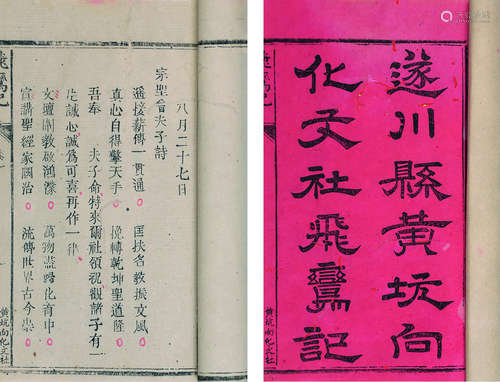 遂川縣黃坑向
化文社飛鸞記
八月二十七日
宗聖曾夫子詩
遙接薪傳一貫通 匡扶名教振文風
真心自得擎天手 挽轉乾坤聖道隆
吾奉 夫子命特來爾社領視觀諸子有一
片誠心誠為可喜再作一律
文壇闡教啟鴻濛 萬物 化育中
宣講聖經家國治 流傳世界古今崇
黃坑向化文社
黃坑向化文社